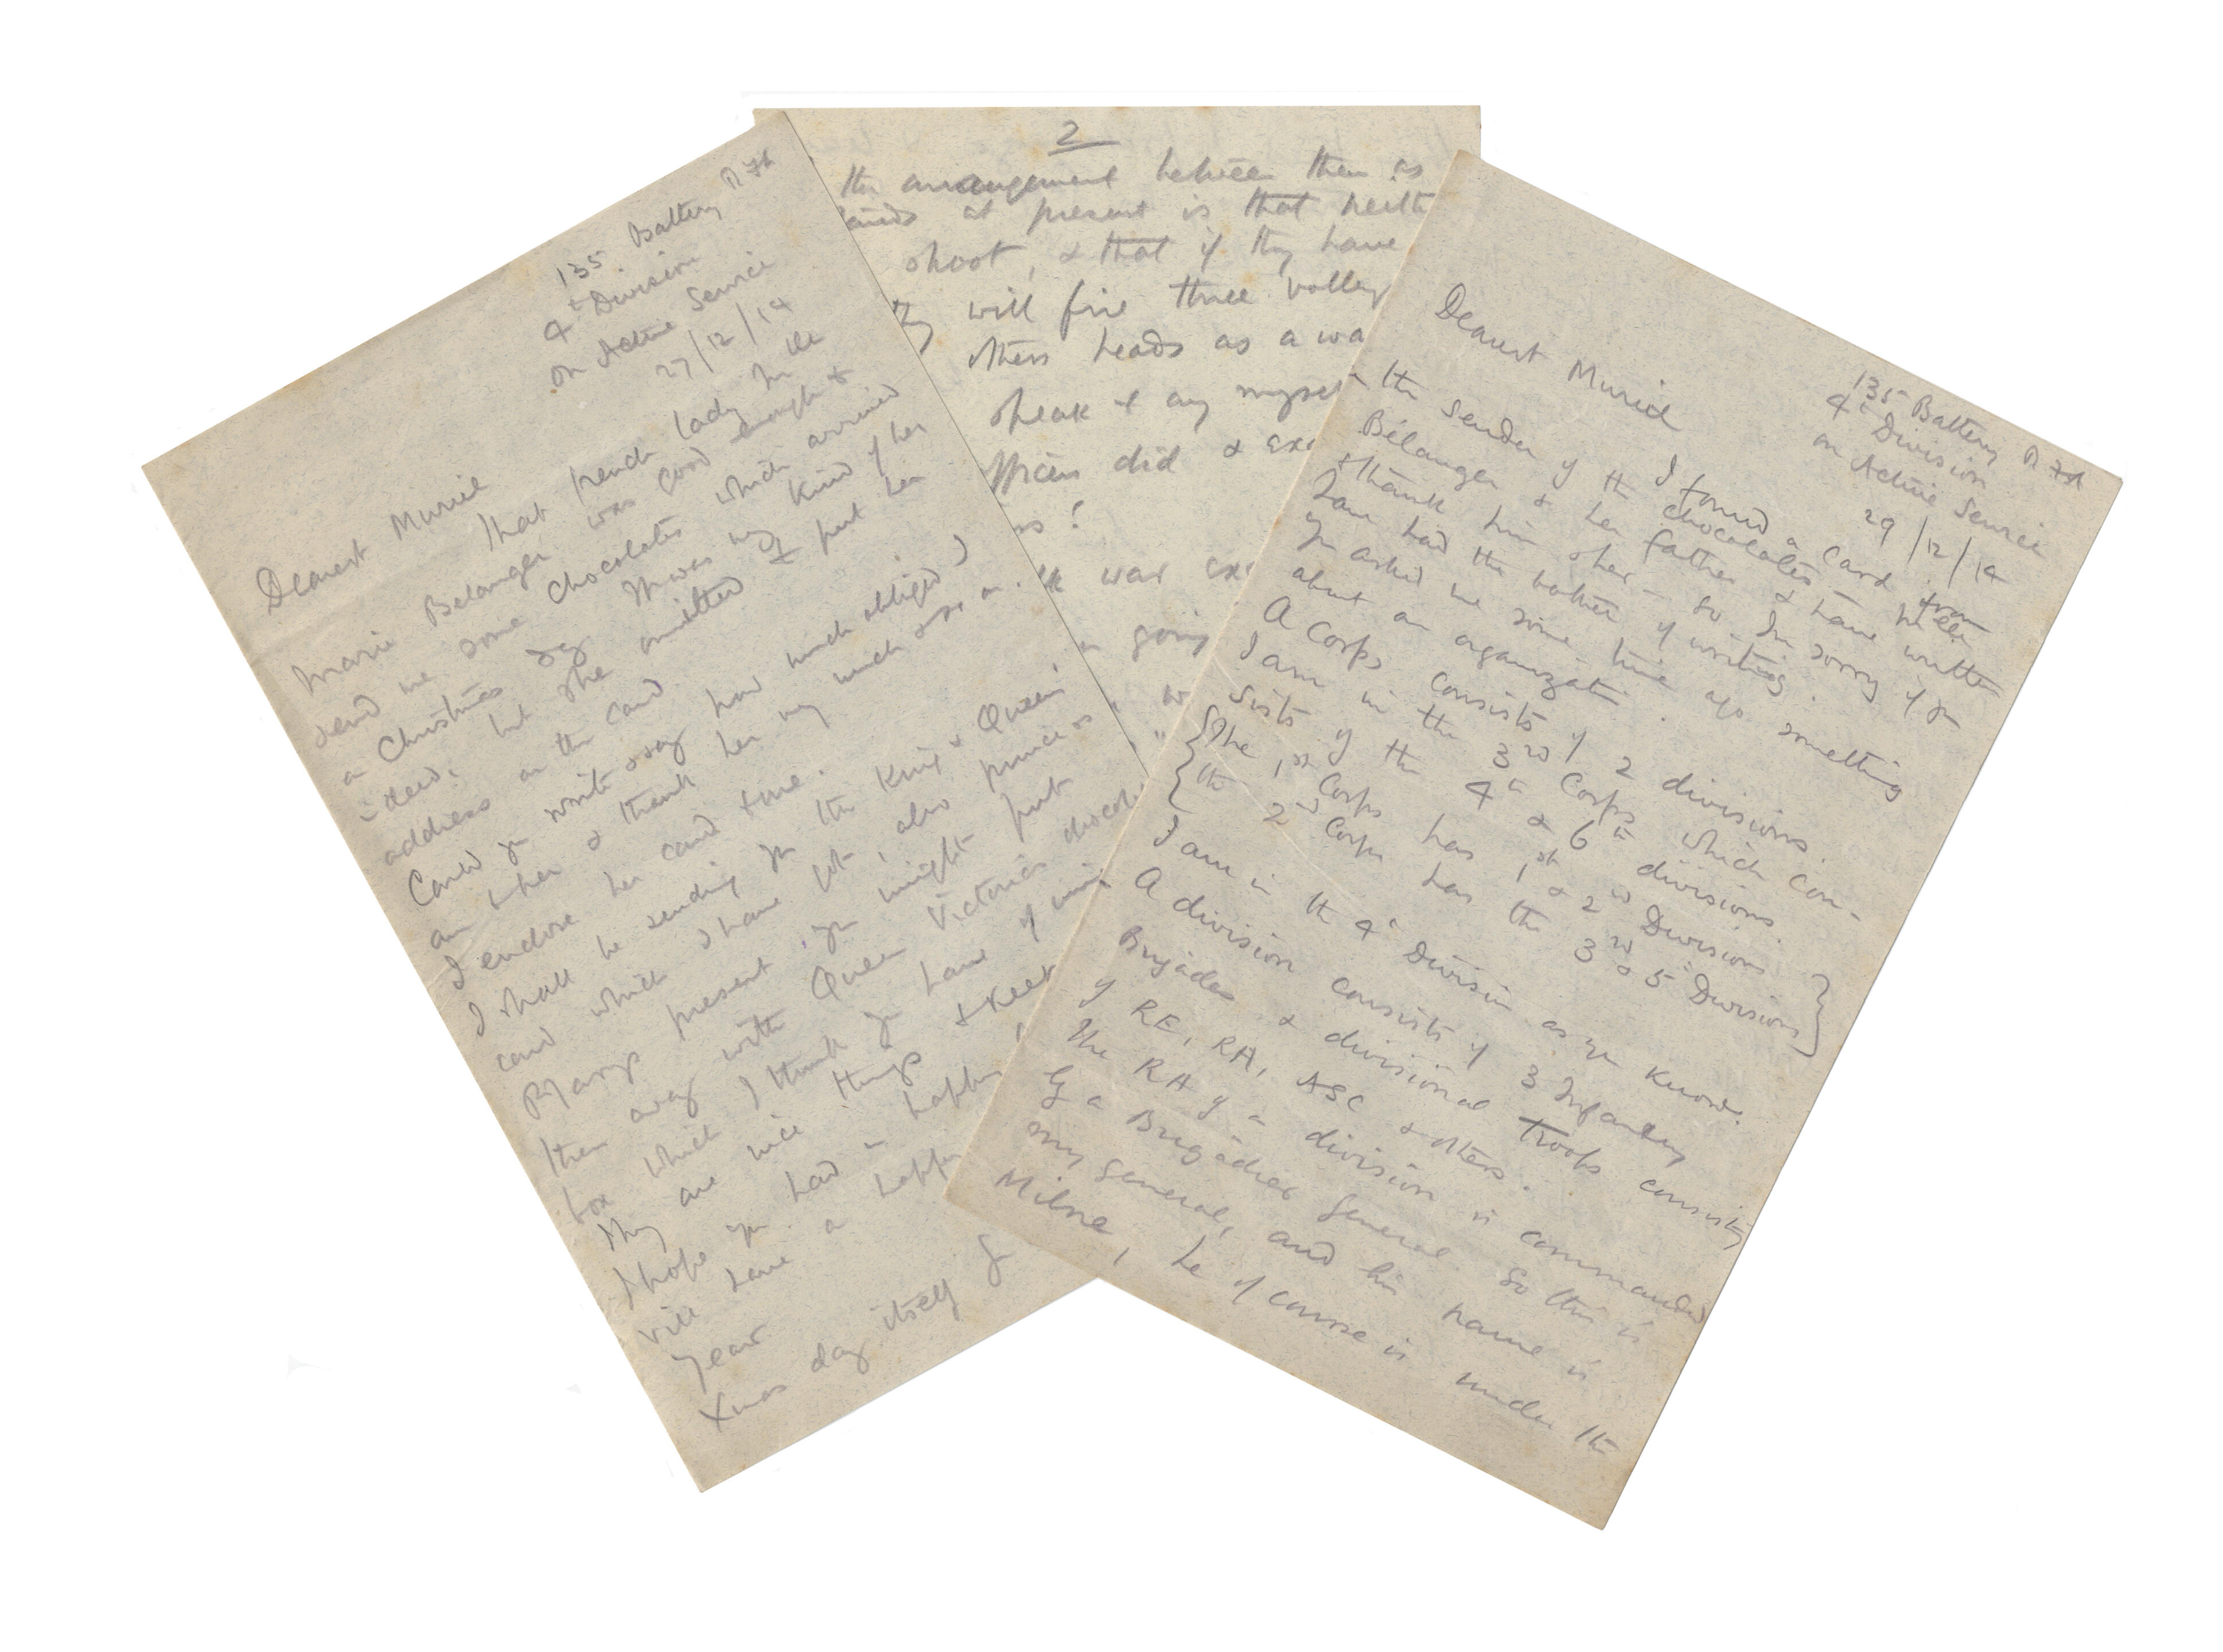 135 Battery RFA
4th Division
on Active Service
27/12/14
Dearest Muriel
That French lady Mr
Marie Belanger was good enough to
send me some chocolates which arrived
on Christmas day It was very kind of her
indeed, but she omitted to put her
address on the card.
Could you write & say how much obliged I
am to her & thank her very much & so on.
I enclose her card to me.
I shall be sending you the King & Queen's
card which I have got, also princess
Marys present, you might put
them away with Queen Victoria's chocol
box which I think you have of mine
They are nice things to keep
I hope you had a happy
will have a happy
year
Xmas day itself
2
the arrangement between them
at present is that neith
shoot, & that if they have
they will fire three volleys
others heads as a wa
speak & any mysel
officers did & exc
?
It was ex
going
w
135 Battery RFA
4th Division
on Active Service
29/12/14
Dearest Muriel
I found a card from
the sender of the chocolates
Bélanger & her father & have written
& thank him & her – So I'm sorry if you
have had the bother of writing.
You asked me some time ago something
about an organization.
A Corps consists of 2 divisions.
I am in the 3rd Corps which con-
sists of the 4th & 6th divisions.
The 1st Corps has 1st & 2nd Divisions
the 2nd Corps has the 3rd & 5th Divisions
I am in the 4th Division as you know.
A division consists of 3 Infantry
Brigades & divisional troops consisting
of RE, RA, ASC & others.
The RA of a division is commanded
by a Brigadier General. So this is
my General, and his name is
Milne, he of course is under the